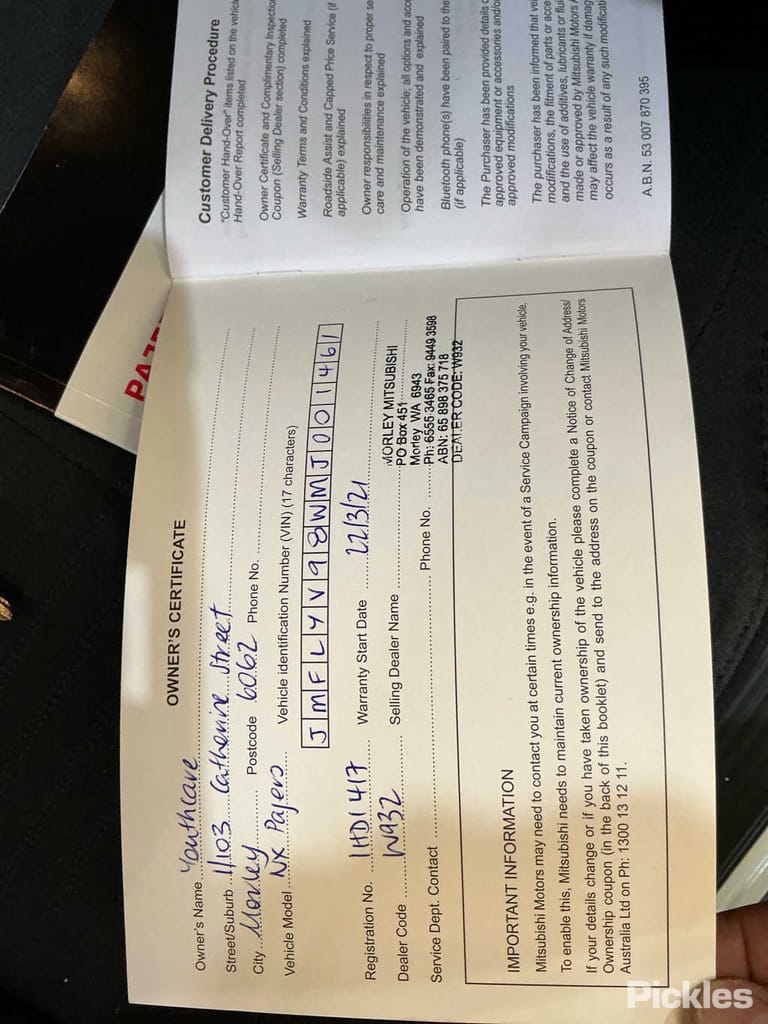 OWNER'S CERTIFICATE
Owner's Name Youthcare
Street/Suburb 1/103 Catherine Street
City Morley Postcode 6062 Phone No.
Vehicle Model NX Pajero Vehicle identification Number (VIN) (17 characters)
J M F L Y V 9 8 W M J 0 0 1 4 6 1
Registration No. 1HDI 417 Warranty Start Date 22/3/21
Dealer Code W932 Selling Dealer Name
MORLEY MITSUBISHI
PO Box 451
Morley WA 6943
Ph: 6555 3465 Fax: 9449 3598
ABN: 65 898 375 718
DEALER CODE: W932
Service Dept. Contact Phone No.
IMPORTANT INFORMATION
Mitsubishi Motors may need to contact you at certain times e.g. in the event of a Service Campaign involving your vehicle.
To enable this, Mitsubishi needs to maintain current ownership information.
If your details change or if you have taken ownership of the vehicle please complete a Notice of Change of Address/
Ownership coupon (in the back of this booklet) and send to the address on the coupon or contact Mitsubishi Motors
Australia Ltd on Ph: 1300 13 12 11.
Customer Delivery Procedure
"Customer Hand-Over" items listed on the vehicle
Hand-Over Report completed
Owner Certificate and Complimentary Inspection
Coupon (Selling Dealer section) completed
Warranty Terms and Conditions explained
Roadside Assist and Capped Price Service (if
applicable) explained
Owner responsibilities in respect to proper
care and maintenance explained
Operation of the vehicle, all options and
have been demonstrated and explained
Bluetooth phone(s) have been paired to the
(if applicable)
The Purchaser has been provided details
approved equipment or accessories and/or
approved modifications
The purchaser has been informed that
modifications, the fitment of parts or
and the use of additives, lubricants or
made or approved by Mitsubishi Motors
may affect the vehicle warranty if
occurs as a result of any such
A.B.N. 53 007 870 395
Pickles